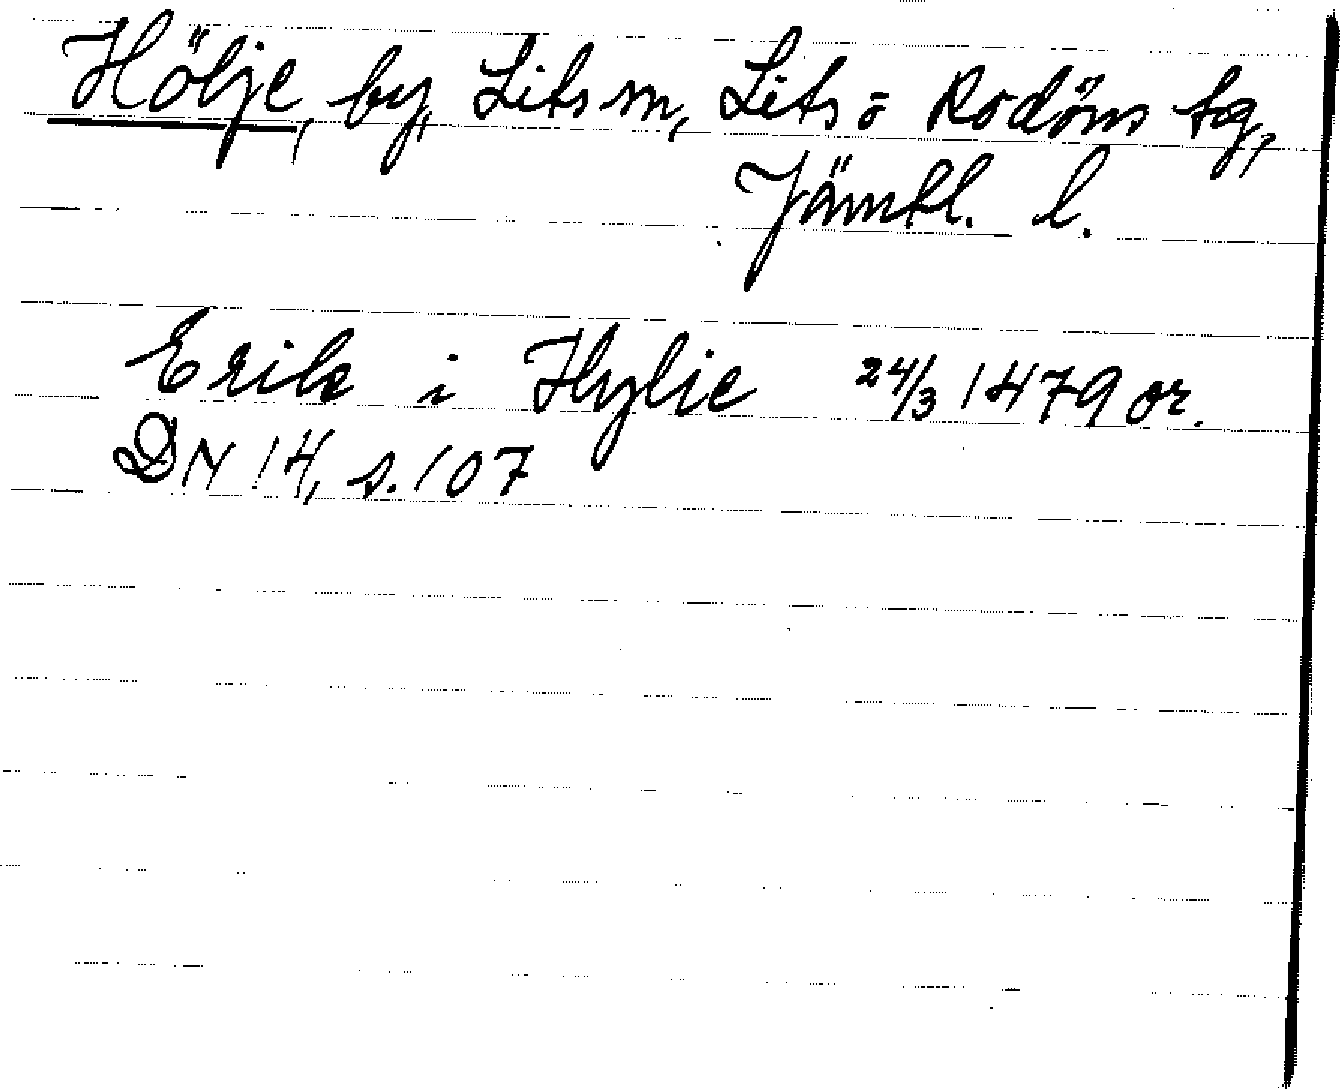 Hölje, by, Lits sn, Lits o Rödöns tg,
Jämtl. l.
Erik i Hylie 24/3 1479 or.
DN 14, s. 107